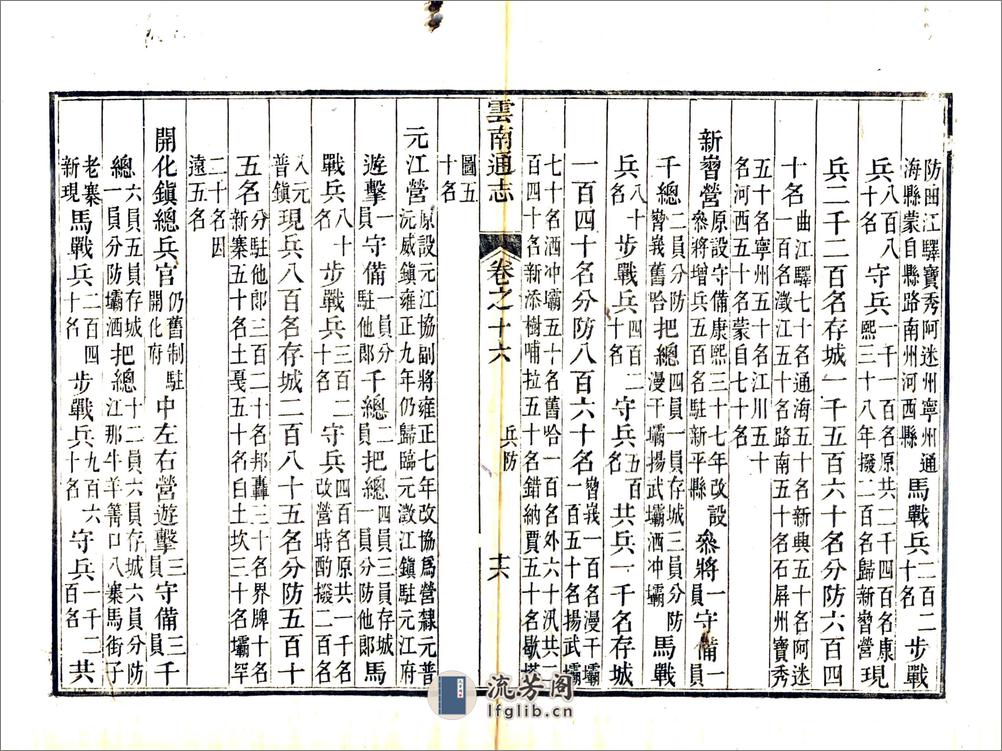 防曲江驛寶秀阿迷州寧州通海縣蒙自縣路南州河西縣馬戰兵二百二十名步戰
兵八百八十名守兵一千一百名原共二千四百名康熙三十八年撥二百名歸新嶍營現
兵二千二百名存城一千五百六十名分防六百四
十名曲江驛七十名通海五十名新興五十名阿迷一百名澂江五十名路南五十名石屏州寶秀
五十名寧州五十名江川五十名河西五十名蒙自七十名
新嶍營原設守備康熙三十七年改設叅將增兵五百名駐新平縣叅將一員守備一員
千總二員分防嶍峩舊哈把總四員一員存城三員分防漫干壩揚武壩洒冲壩馬戰
兵八十名步戰兵四百二十名守兵五百名共兵一千名存城
一百四十名分防八百六十名嶍峩一百名漫干壩一百五十名揚武壩
七十名洒冲壩五十名舊哈一百名外六十汛共二百四十名新添樹哺拉五十名錯納賈五十名歇塔
雲南通志 卷之十六 兵防 十六
圖五十名
元江營原設元江協副將雍正七年改協爲營隸元普沅威鎮雍正九年仍歸臨元澂江鎮駐元江府
遊擊一員守備一員分駐他郎千總二員把總四員三員存城一員分防他郎馬
戰兵八十名步戰兵三百二十名守兵四百名原共一千名改營時酌撥二百名
入元普鎮現兵八百名存城二百八十五名分防五百十
五名分駐他郎三百二十名邦轟三十名界牌十名新寨五十名土戛五十名白土坎三十名壩罕
二十名因遠五名
開化鎮總兵官仍舊制駐開化府中左右營遊擊三員守備三員千
總六員五員存城一員分防壩洒把總十二員六員存城六員分防江那牛羊箐口八寨馬街子
老寨新現馬戰兵二百四十名步戰兵九百六十名守兵一千二百名共
流芳阁
lfglib.cn